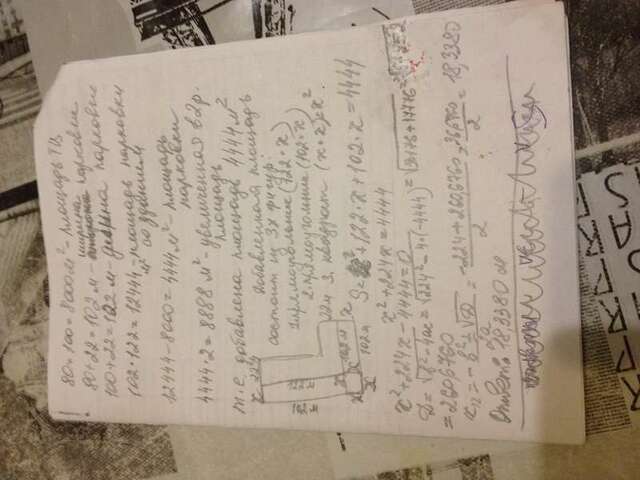 80·100=8000м² - площадь ТЦ
80+22=102 м - ширина парковки
100+22=122 м - длина парковки
102·122=12444 м² - площадь парковки со зданием
12444-8000=4444 м² - площадь парковки
4444·2=8888 м² - увеличенная в 2 р. площадь
т.е. добавлена площадь 4444 м²
x 22м
Добавленная площадь
состоит из 3х фигур:
1. прямоугольник (122·x)
2. прямоугольник (102·x)
3. квадрат (x·x)=x²
122 м
22м
x
x
102 м
x
x
102 м
S= x²+122·x+102·x=4444
x²+224x=4444
x²+224x-4444=0
D=√b²-4ac=√224²-4·(-4444)=√50176+17776
=260,6760
x₁₂=-b²±√D/2a=-224+260,6760/2=36,6760/2=18,3380
Ответ: 18,3380 м
КРК
SAS